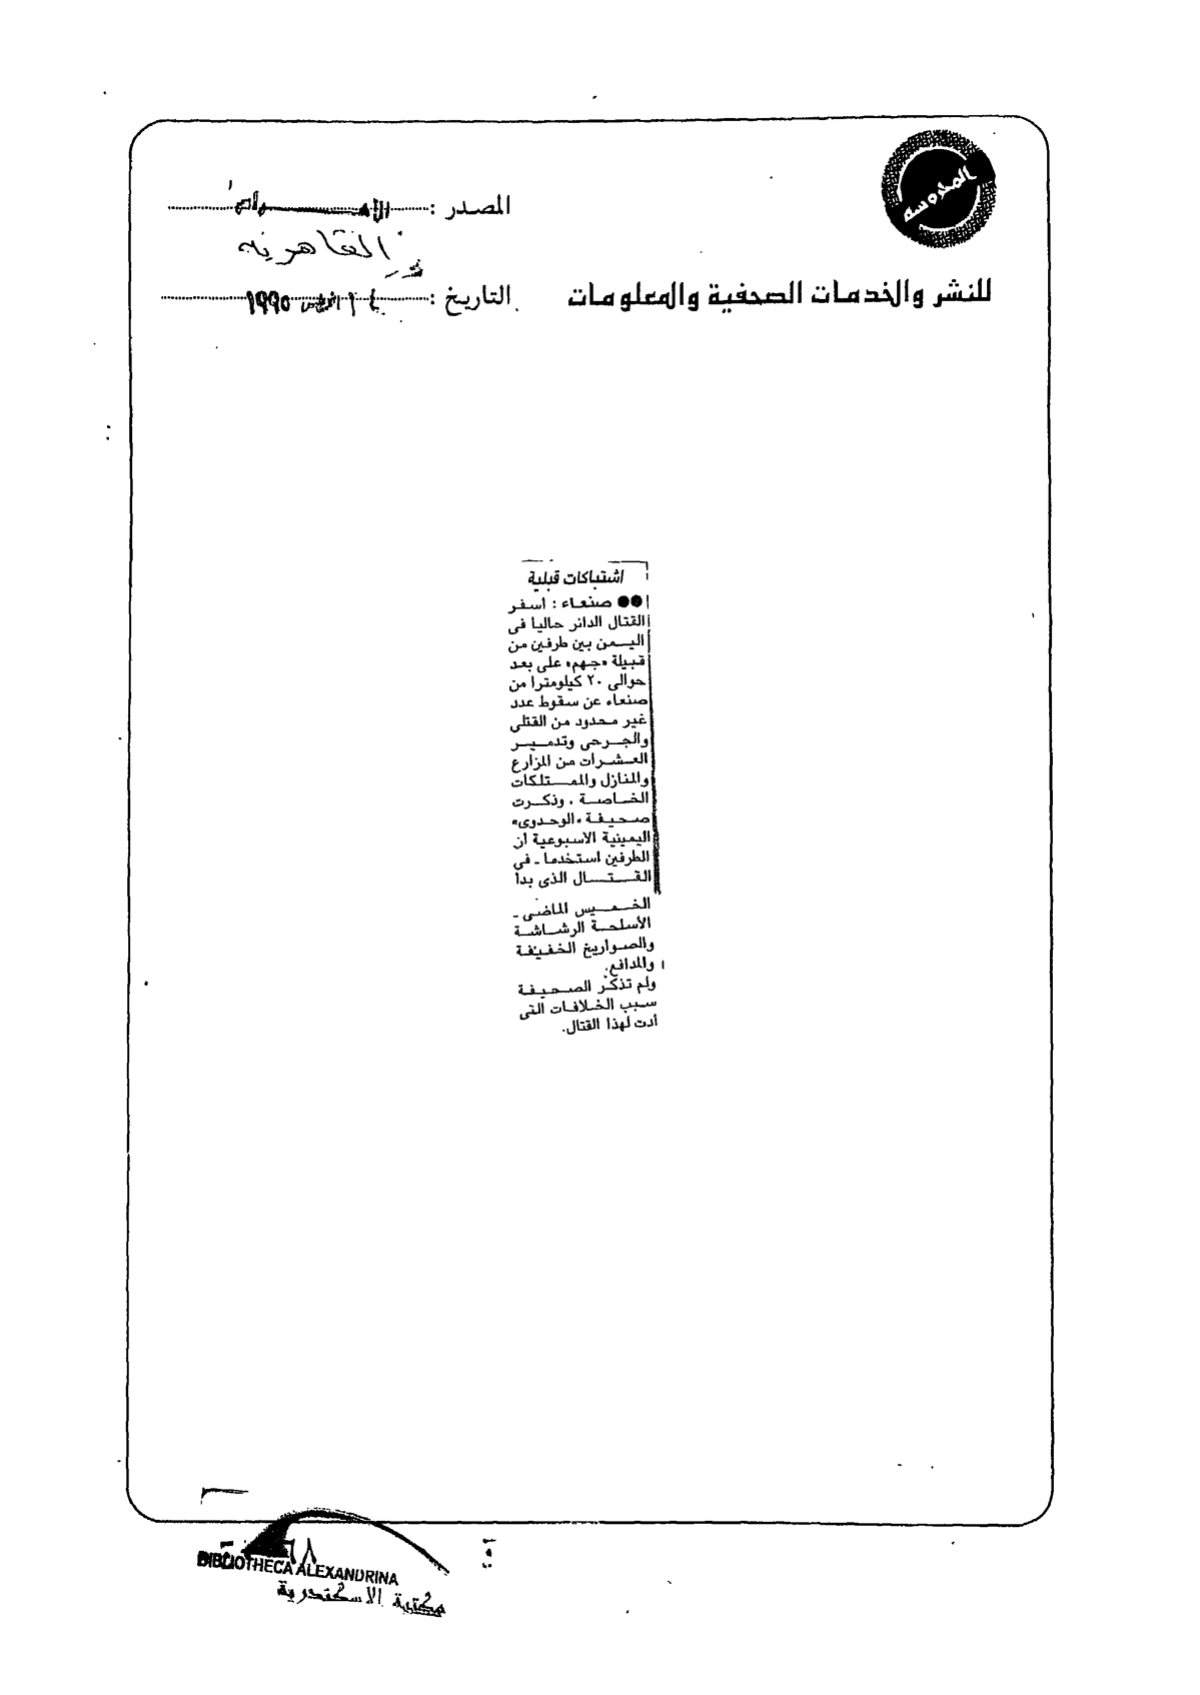 المحروسة
المصدر :
القاهرية
للنشر والخدمات الصحفية والمعلومات
التاريخ : ١٩٩٥
اشتباكات قبلية
●● صنعاء : أسفر
القتال الدائر حاليا فى
اليمن بين طرفين من
قبيلة «جهم» على بعد
حوالى ٢٠ كيلومترا من
صنعاء عن سقوط عدد
غير محدود من القتلى
والجرحى وتدمير
العشرات من المزارع
والمنازل والممتلكات
الخاصة ، وذكرت
صحيفة «الوحدوى»
اليمينية الأسبوعية أن
الطرفين استخدما ـ فى
القتال الذى بدأ
الخميس الماضى ـ
الأسلحة الرشاشة
والصواريخ الخفيفة
والمدافع.
ولم تذكر الصحيفة
سبب الخلافات التى
أدت لهذا القتال.
BIBLIOTHECA ALEXANDRINA
مكتبة الاسكندرية